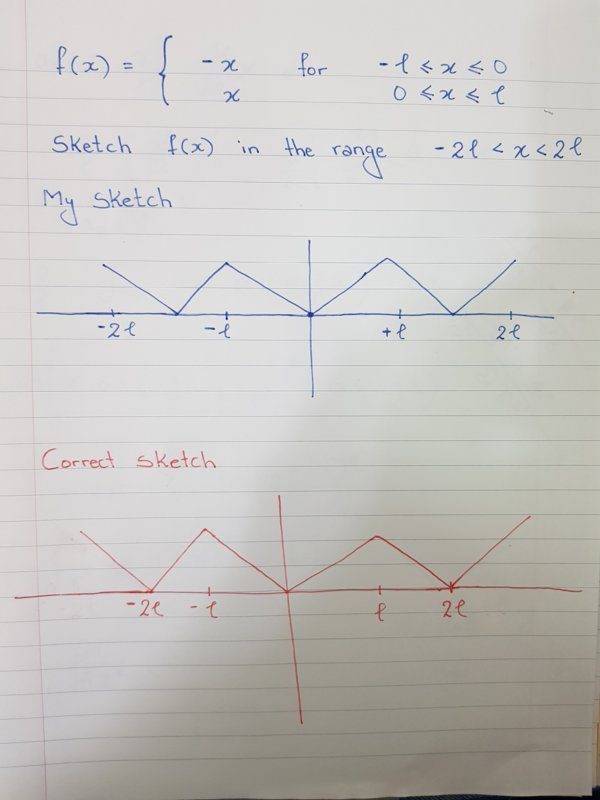 f(x) = { -x for -l ⩽ x ⩽ 0
x 0 ⩽ x ⩽ l
Sketch f(x) in the range -2l < x < 2l
My Sketch
-2l -l +l 2l
Correct sketch
-2l -l l 2l